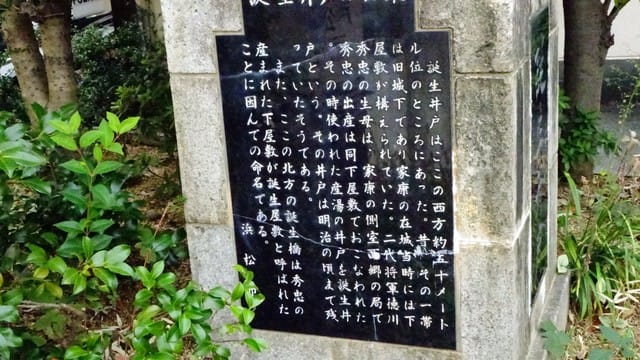 誕生井戸はここの西方約五十メート
ル位のところにあった。昔、その一帯
は旧城下であり家康の在城当時には下
屋敷が構えられていた。二代将軍徳川
秀忠の生母は、家康の側室西郷の局で
秀忠の出産は同下屋敷でおこなわれた
。その時使われた産湯の井戸を誕生井
戸という。その井戸は明治の頃まで残
っていたそうである。
また、ここの北方の誕生橋は秀忠の
産まれた下屋敷が誕生屋敷と呼ばれた
ことに因んでの命名である。
浜松市